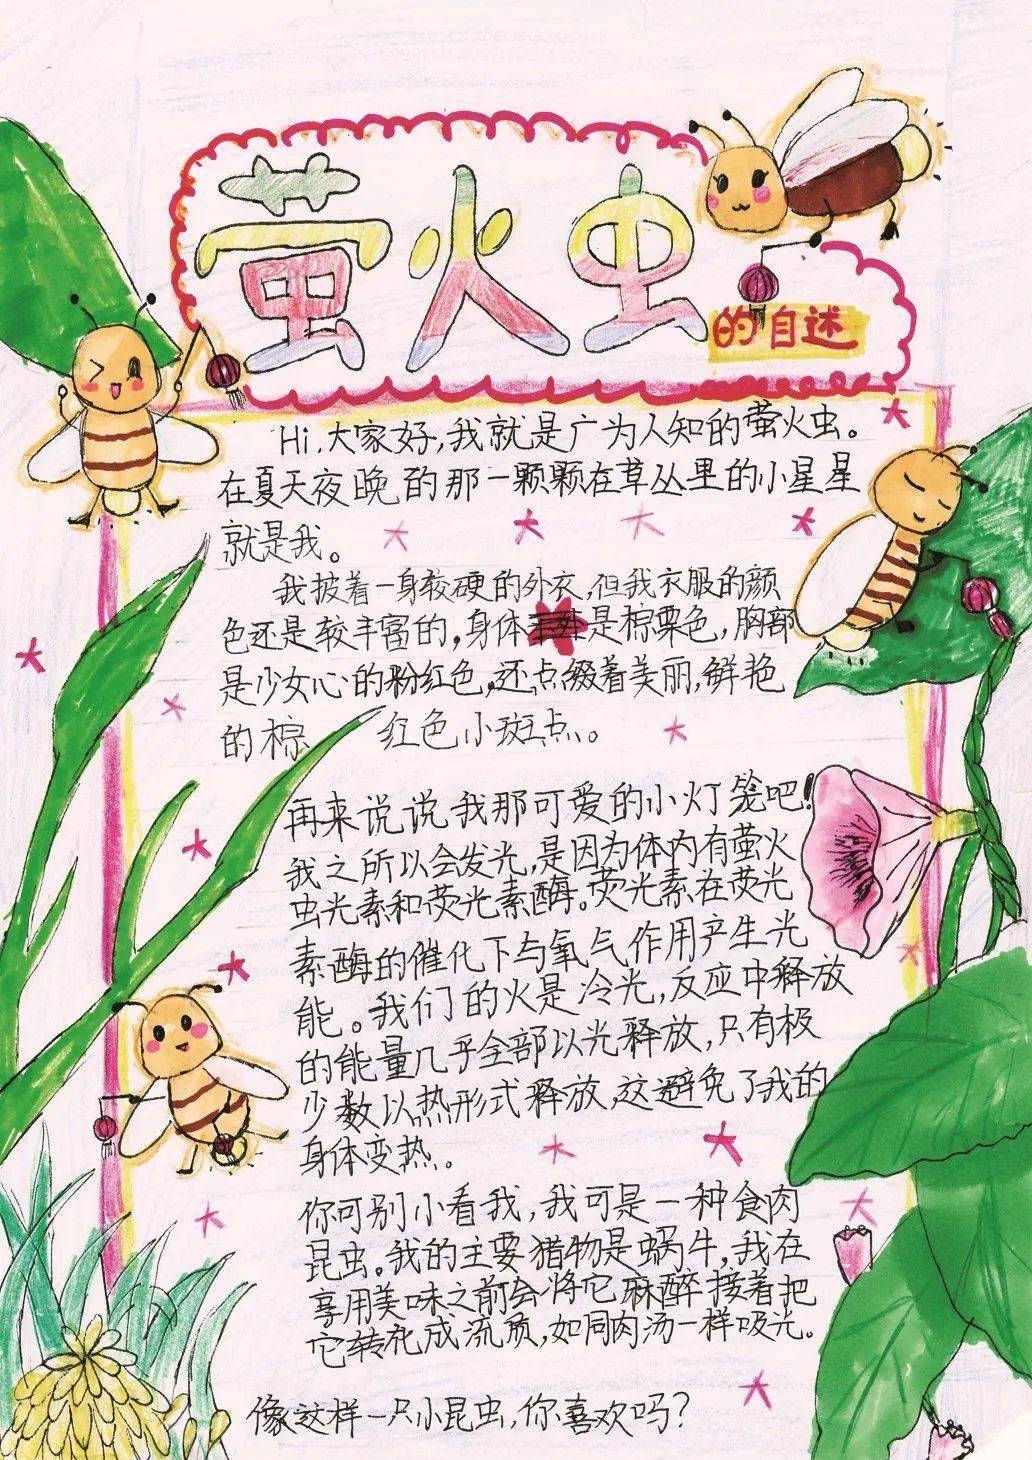 萤火虫
的自述
Hi,大家好,我就是广为人知的萤火虫。
在夏天夜晚的那一颗颗在草丛里的小星星
就是我。
我披着一身较硬的外衣,但我衣服的颜
色还是较丰富的,身体是棕栗色,胸部
是少女心的粉红色,还点缀着美丽,鲜艳
的棕 红色小斑点。
再来说说我那可爱的小灯笼吧!
我之所以会发光,是因为体内有萤火
虫光素和荧光素酶。荧光素在荧光
素酶的催化下与氧气作用产生光
能。我们的火是冷光,反应中释放
的能量几乎全部以光释放,只有极
少数以热形式释放,这避免了我的
身体变热。
你可别小看我,我可是一种食肉
昆虫。我的主要猎物是蜗牛,我在
享用美味之前会将它麻醉接着把
它转化成流质,如同肉汤一样吸光。
像这样一只小昆虫,你喜欢吗?